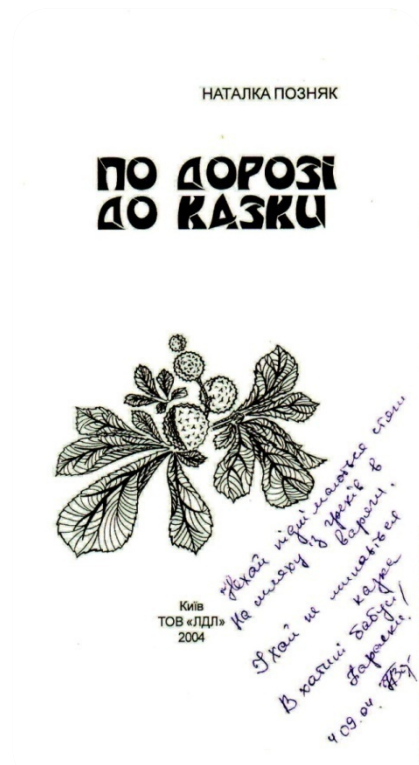 НАТАЛКА ПОЗНЯК
ПО ДОРОЗІ
ДО КАЗКИ
Київ
ТОВ «ЛДЛ»
2004
Нехай підіймаються стяги
На шляху із греків в
варяги.
І хай не минається
казка
В хатині бабусі
Параски!
4 09.04.